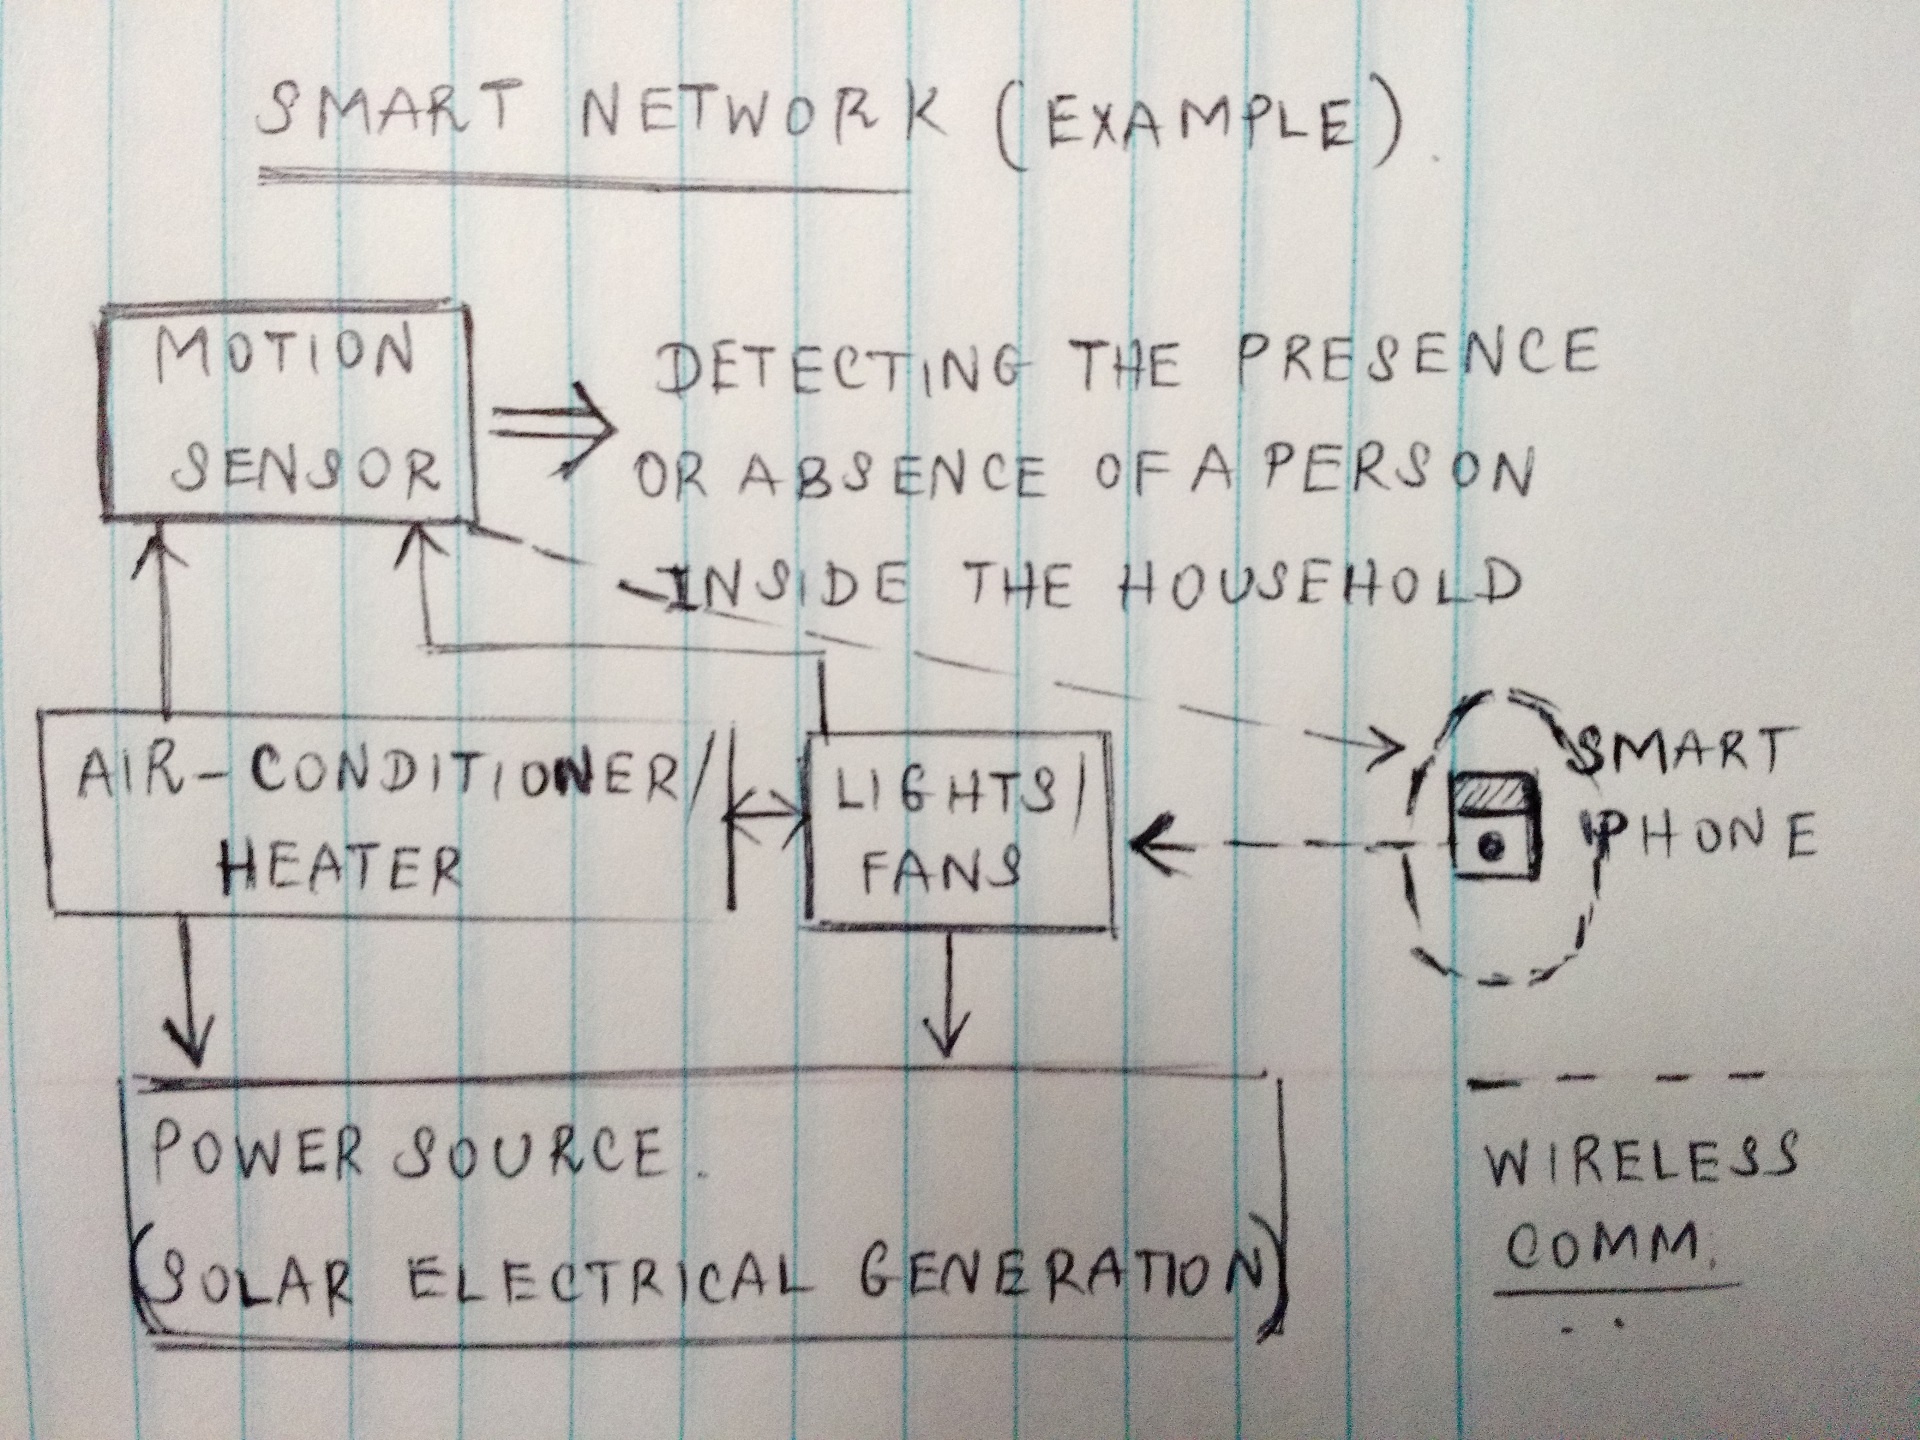 SMART NETWORK (EXAMPLE)
MOTION
SENSOR
DETECTING THE PRESENCE
OR ABSENCE OF A PERSON
INSIDE THE HOUSEHOLD
AIR-CONDITIONER/
HEATER
LIGHTS/
FANS
SMART
PHONE
POWER SOURCE.
(SOLAR ELECTRICAL GENERATION)
WIRELESS
COMM.